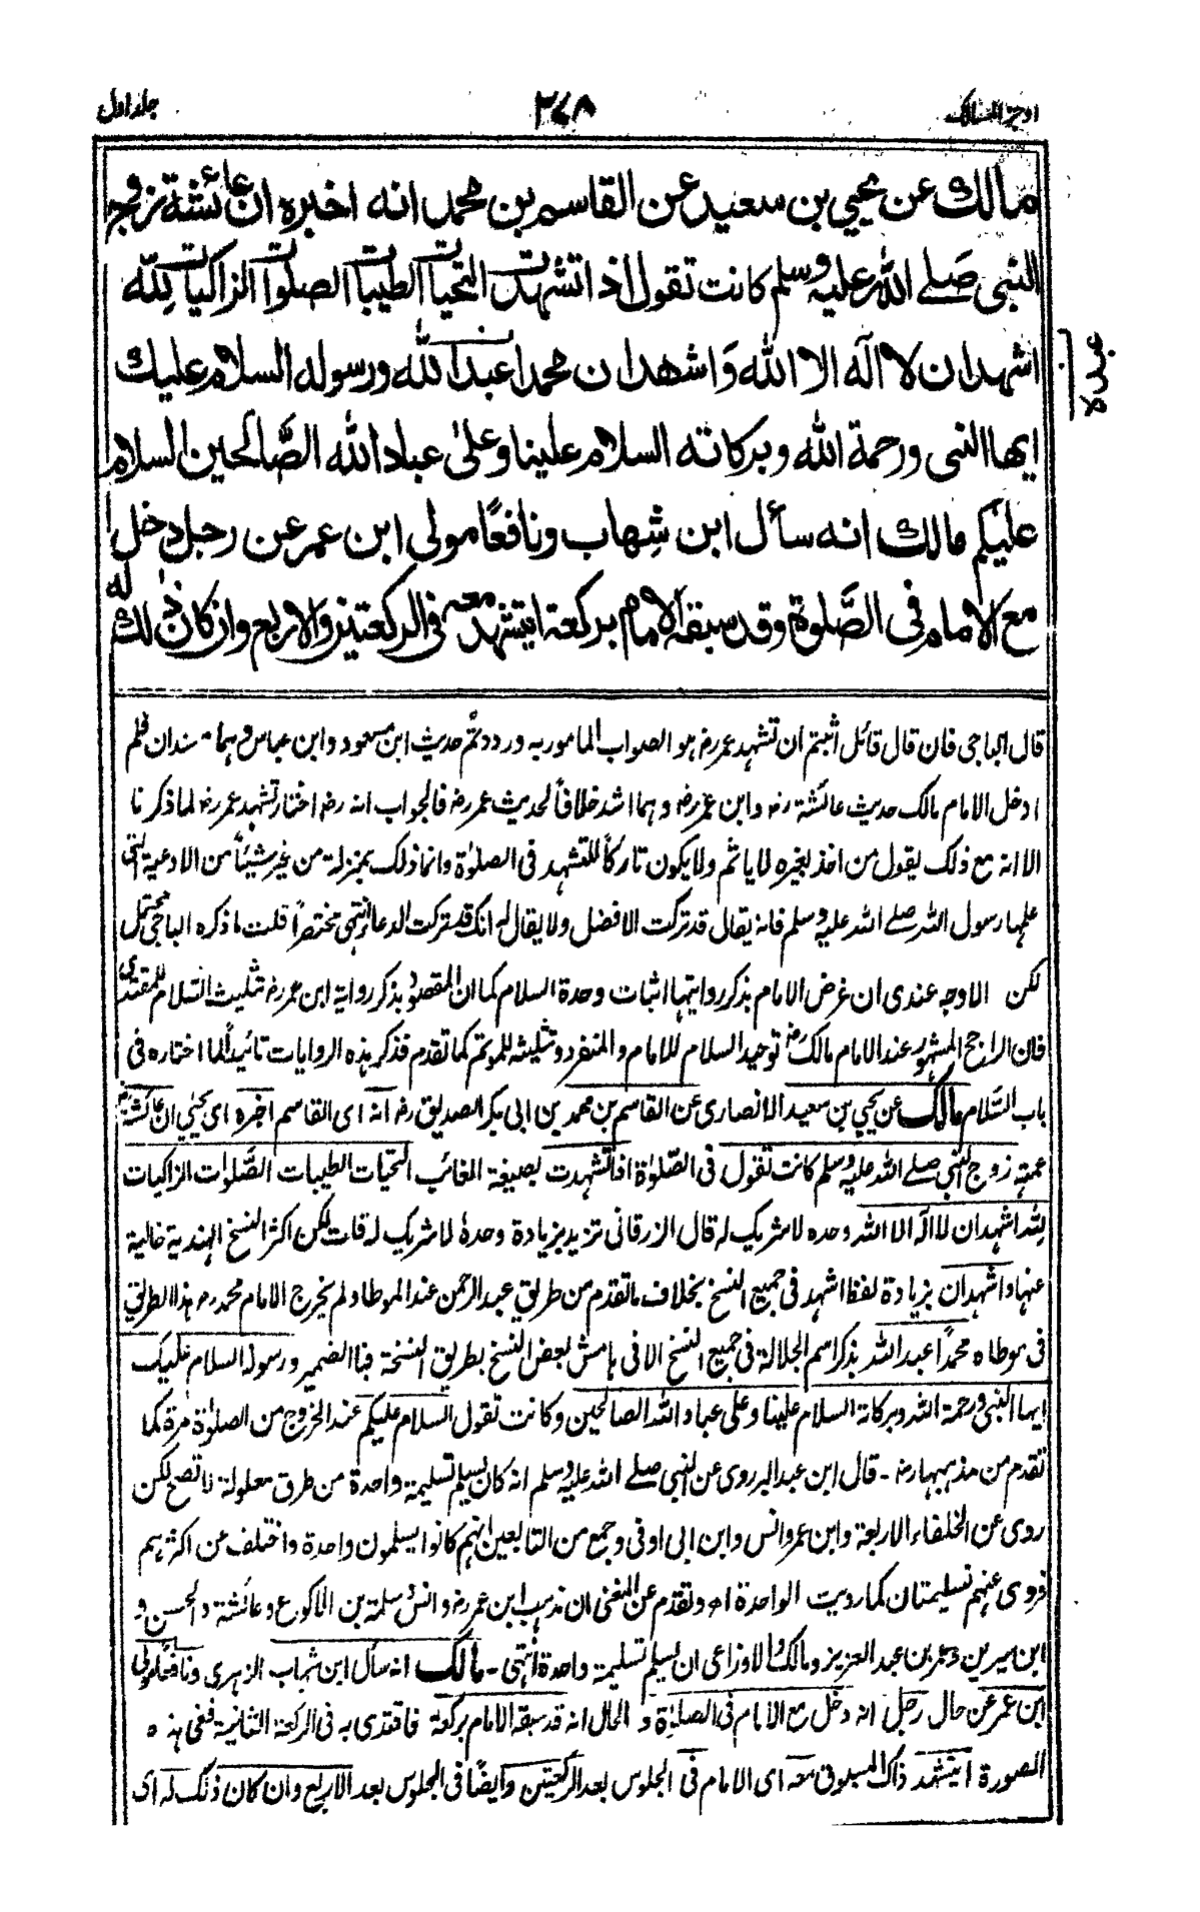 اوجز المسالك
٢٦٨
جلد اول
مالك عن يحيي بن سعيد عن القاسم بن محمد انه اخبره ان عائشة زوج
النبى صلے الله عليه وسلم كانت تقول اذا تشهدت التحيات الطيبات الصلوات الزاكيات لله
اشهد ان لا اله الا الله وَاشهد ان محمدا عبد الله ورسوله السلام عليك
عبده
ايها النبى ورحمة الله وبركاته السلام علينا وعلىٰ عباد الله الصَّالحين السلام
عليكم مالك انه سأل ابن شِهاب ونافعًا مولى ابن عمر عن رجل دخل
مع الامام فى الصَّلوة وقد سبقه الامام بركعة ايتشهد معه فى الركعتين والاربع وان كان ذٰلك له
قال الباجى فان قال قائل اثبتم ان تشهد عمر رضہ هو الصواب المامور به ورددتم حديث ابن مسعود وابن عباس وهما مسندان فلم
ادخل الامام مالك حديث عائشة رضہ وابن عمر رضہ وهما اشد خلافاً لحديث عمر رضہ فالجواب انه رضہ اختار تشهد عمر رضہ لما ذكرنا
الا انه مع ذلك يقول من اخذ بغيره لا ياثم ولا يكون تاركاً للتشهد فى الصلوٰة وانما ذلك بمنزلة من غير شيئاً من الادعية التى
علمها رسول الله صلے الله عليه وسلم فانه يقال قد تركت الافضل ولا يقال له انك قد تركت الدعاء انتهى مختصراً قلت ما ذكره الباجى محتمل
لكن الاوجه عندى ان غرض الامام بذكر روايتها اثبات وحدة السلام كما ان المقصود بذكر رواية ابن عمر رضہ تثليث السلام للمقتدى
فان الراجح المشهور عند الامام مالك رضہ توحيد السلام للامام والمنفرد وتثليثه للموتم كما تقدم فذكر هذه الروايات تائيداً لما اختاره فى
باب السَّلام مالك عن يحيي بن سعيد الانصارى عن القاسم بن محمد بن ابى بكر الصديق رضہ انه اى القاسم اخبره اى يحيٰي ان عائشة رضہ
عمته زوج النبى صلے الله عليه وسلم كانت تقول فى الصّلوٰة اذا تشهدت بصيغة الغائب التحيات الطيبات الصَّلوات الزاكيات
لِلّٰه اشهد ان لا اله الا الله وحده لا شريك له قال الزرقانى تزيد بزيادة وحدهٗ لا شريك له قلت لكن اكثر النسخ الهندية خالية
عنها واشهد ان بزيادة لفظ اشهد فى جميع النسخ بخلاف ما تقدم من طريق عبد الرحمن عند الموطا ولم يخرج الامام محمد رہ هذا الطريق
فى موطاه محمداً عبد الله بذكر اسم الجلالة فى جميع النسخ الا فى هامش بعض النسخ بطريق النسخة فبالضمير ورسوله السلام عليك
ايها النبى ورحمة الله وبركاته السلام علينا وعلى عباد الله الصالحين وكانت تقول السلام عليكم عند الخروج من الصلوٰة مرة كما
تقدم من مذهبها رضہ ۔ قال ابن عبد البر روى عن النبى صلے الله عليه وسلم انه كان يسلم تسليمة واحدة من طرق معلولة لا تصح لكن
روى عن الخلفاء الاربعة وابن عمر وانس وابن ابى اوفى وجمع من التابعين انهم كانوا يسلمون واحدة واختلف عن اكثرهم
فروى عنهم تسليمتان كما رويت الواحدة اھ وتقدم عن المغنى ان مذهب ابن عمر رضہ وانس وسلمة بن الاكوع وعائشة والحسن و
ابن سيرين وعمر بن عبد العزيز ومالك والاوزاعى ان يسلم تسليمة واحدة انتهى ۔ مالك انه سأل ابن شهاب الزهرى ونافعا مولى
ابن عمر عن حال رجل انه دخل مع الامام فى الصلوٰة و الحال انه قد سبقه الامام بركعة فاقتدى به فى الركعة الثانية ففى هذه
الصورة ايتشهد ذاك المسبوق معه اى الامام فى الجلوس بعد الركعتين وايضًا فى الجلوس بعد الاربع وان كان ذلك له اى